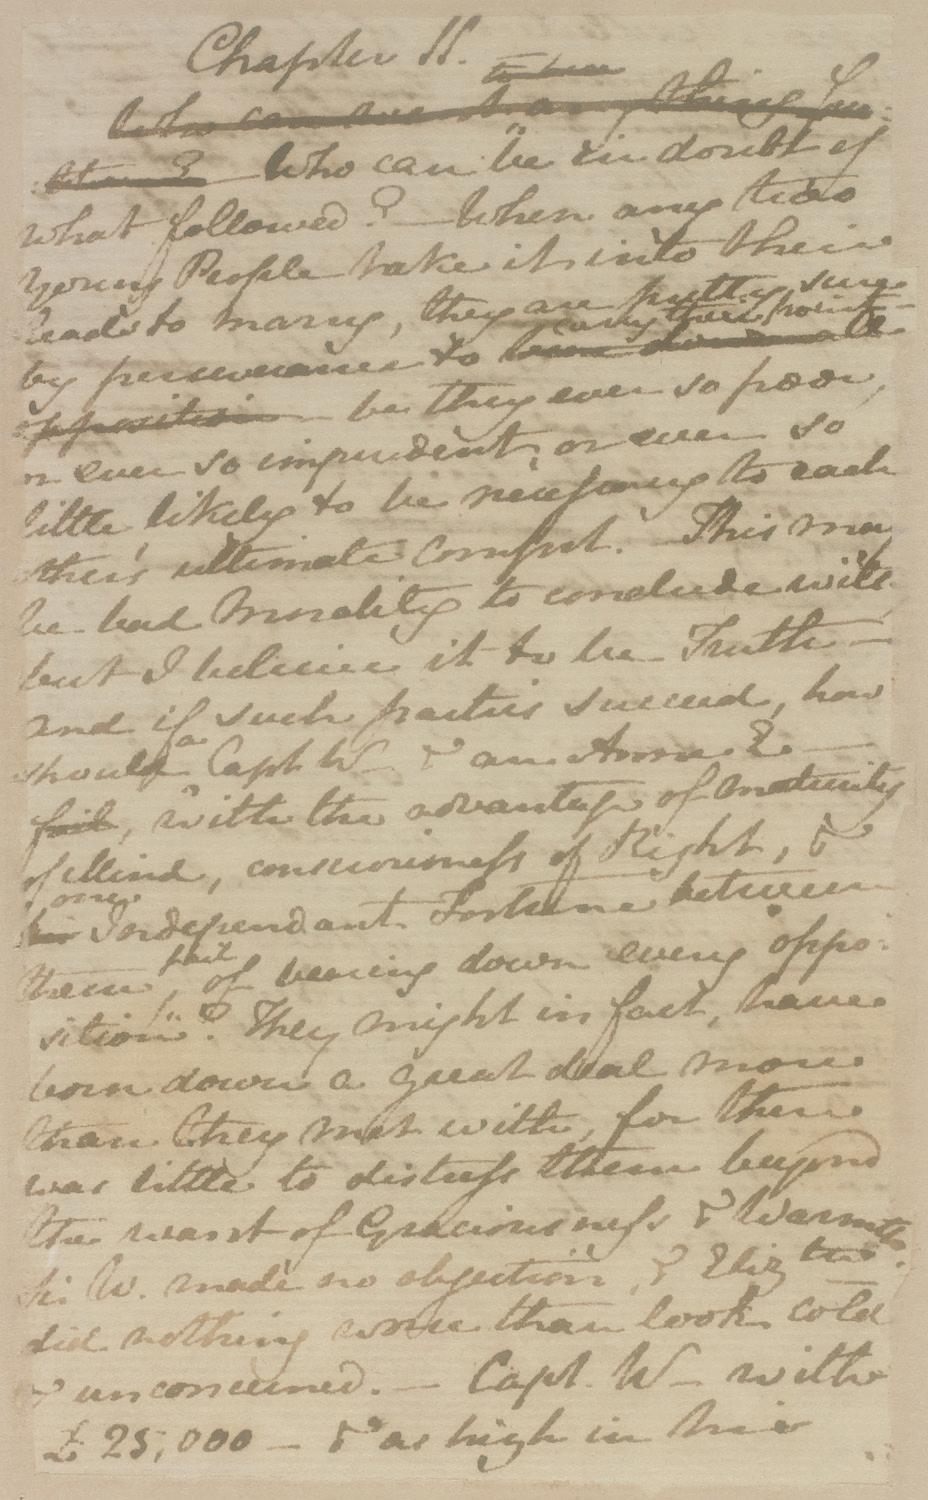 Chapter 11.
to have
Who can want any thing fur:
:ther? Who can be in doubt of
what followed? — When any two
Young People take it into their
heads to marry, they are pretty sure
carry their point—
by perseverance to bear down all
opposition — be they ever so poor,
or ever so imprudent, or ever so
little likely to be necessary to each
other's ultimate comfort. This may
be bad Morality to conclude with,
but I believe it to be Truth —
and if such parties succeed, how
should a Capt W— & an Anne E—
fail, with the advantage of maturity
of Mind, consciousness of Right, &
one
his Independant Fortune between
fail
them, of bearing down every oppo:
sition? They might in fact, have
born down a great deal more
than they met with, for there
was little to distress them beyond
the want of Graciousness & Warmth.
Sir W. made no objection, & Elizth
did nothing worse than look cold
& unconcerned. — Capt. W— with
£25,000 — & as high in his